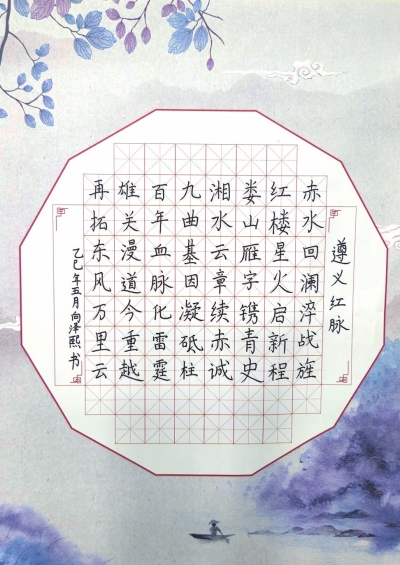 遵义红脉
赤水回澜淬战旌
红楼星火启新程
娄山雁字镌青史
湘水云章续赤诚
九曲基因凝砥柱
百年血脉化雷霆
雄关漫道今重越
再拓东风万里云
乙巳年五月向泽熙书